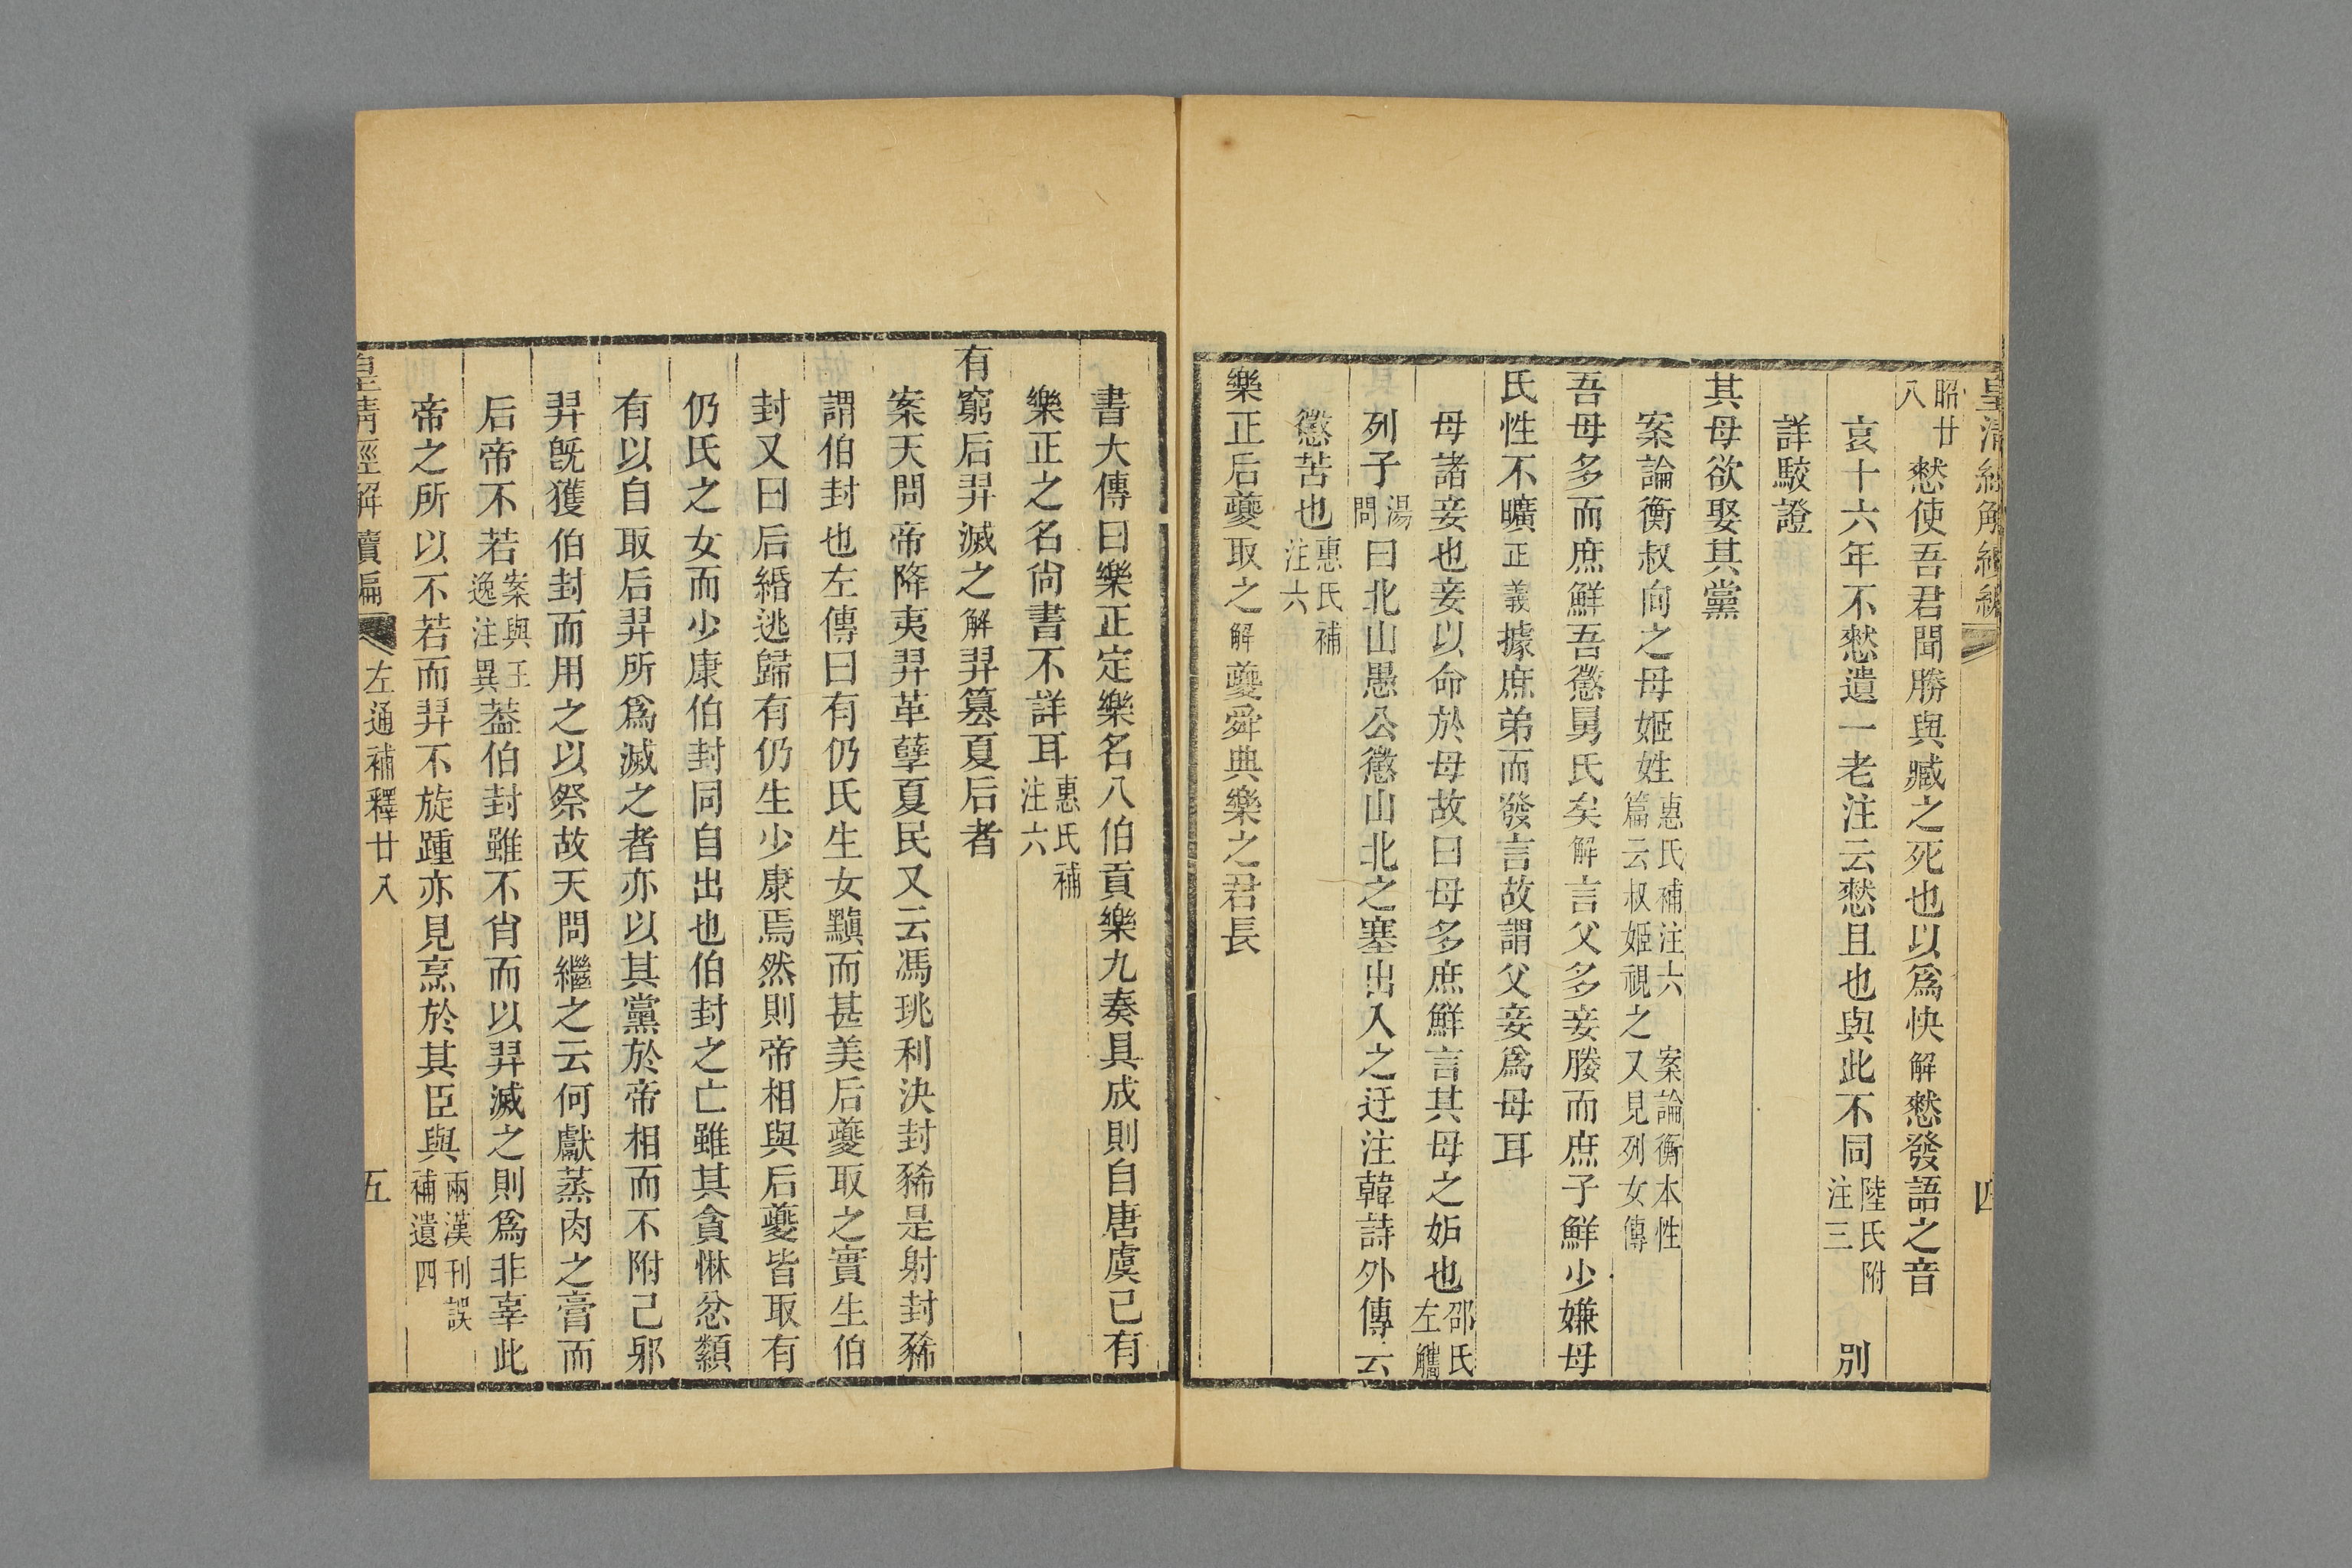 皇清經解續編　四
昭廿八憖使吾君聞勝與臧之死也以爲快解憖發語之音
哀十六年不憖遺一老注云憖且也與此不同陸氏附注三　別
詳駮證
其母欲娶其黨
案論衡叔向之母姬姓惠氏補注六　案論衡本性篇云叔姬視之又見列女傳
吾母多而庶鮮吾懲舅氏矣解言父多妾媵而庶子鮮少嫌母
氏性不曠正義據庶弟而發言故謂父妾爲母耳
母諸妾也妾以命於母故曰母多庶鮮言其母之妒也邵氏左觿
列子湯問曰北山愚公懲山北之塞出入之迂注韓詩外傳云
懲苦也惠氏補注六
樂正后夔取之解夔舜典樂之君長
書大傳曰樂正定樂名八伯貢樂九奏具成則自唐虞已有
樂正之名尙書不詳耳惠氏補注六
有窮后羿滅之解羿篡夏后者
案天問帝降夷羿革孽夏民又云馮珧利決封豨是射封豨
謂伯封也左傳曰有仍氏生女黰而甚美后夔取之實生伯
封又曰后緡逃歸有仍生少康焉然則帝相與后夔皆取有
仍氏之女而少康伯封同自出也伯封之亡雖其貪惏忿纇
有以自取后羿所爲滅之者亦以其黨於帝相而不附己邪
羿旣獲伯封而用之以祭故天問繼之云何獻蒸肉之膏而
后帝不若案與王逸注異葢伯封雖不肖而以羿滅之則爲非辜此
帝之所以不若而羿不旋踵亦見烹於其臣與兩漢刊誤補遺四
皇清經解續編　左通補釋廿八　五